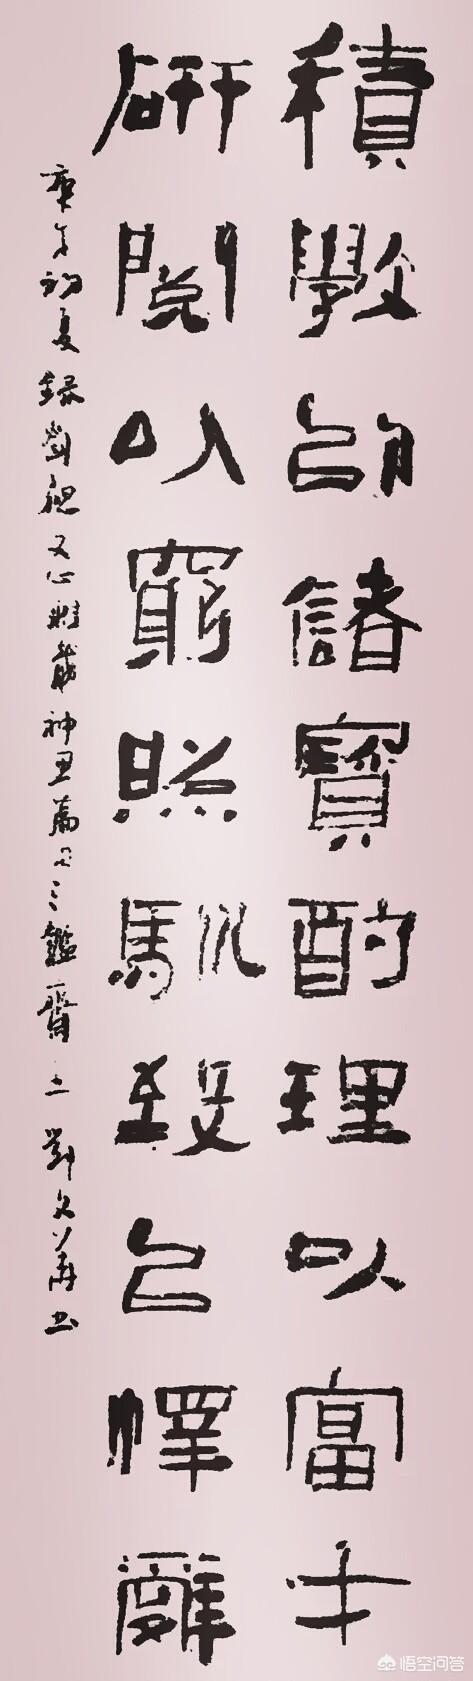 積學以儲寶酌理以富才
研閱以窮照馴致以懌辭
庚子初夏錄劉勰文心雕龍神思篇句三鑑齋主劉文華書
悟空问答